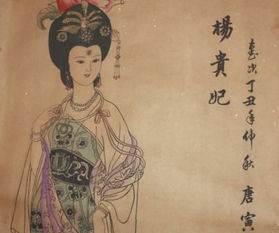 楊貴妃
歲次丁丑年仲秋
唐寅